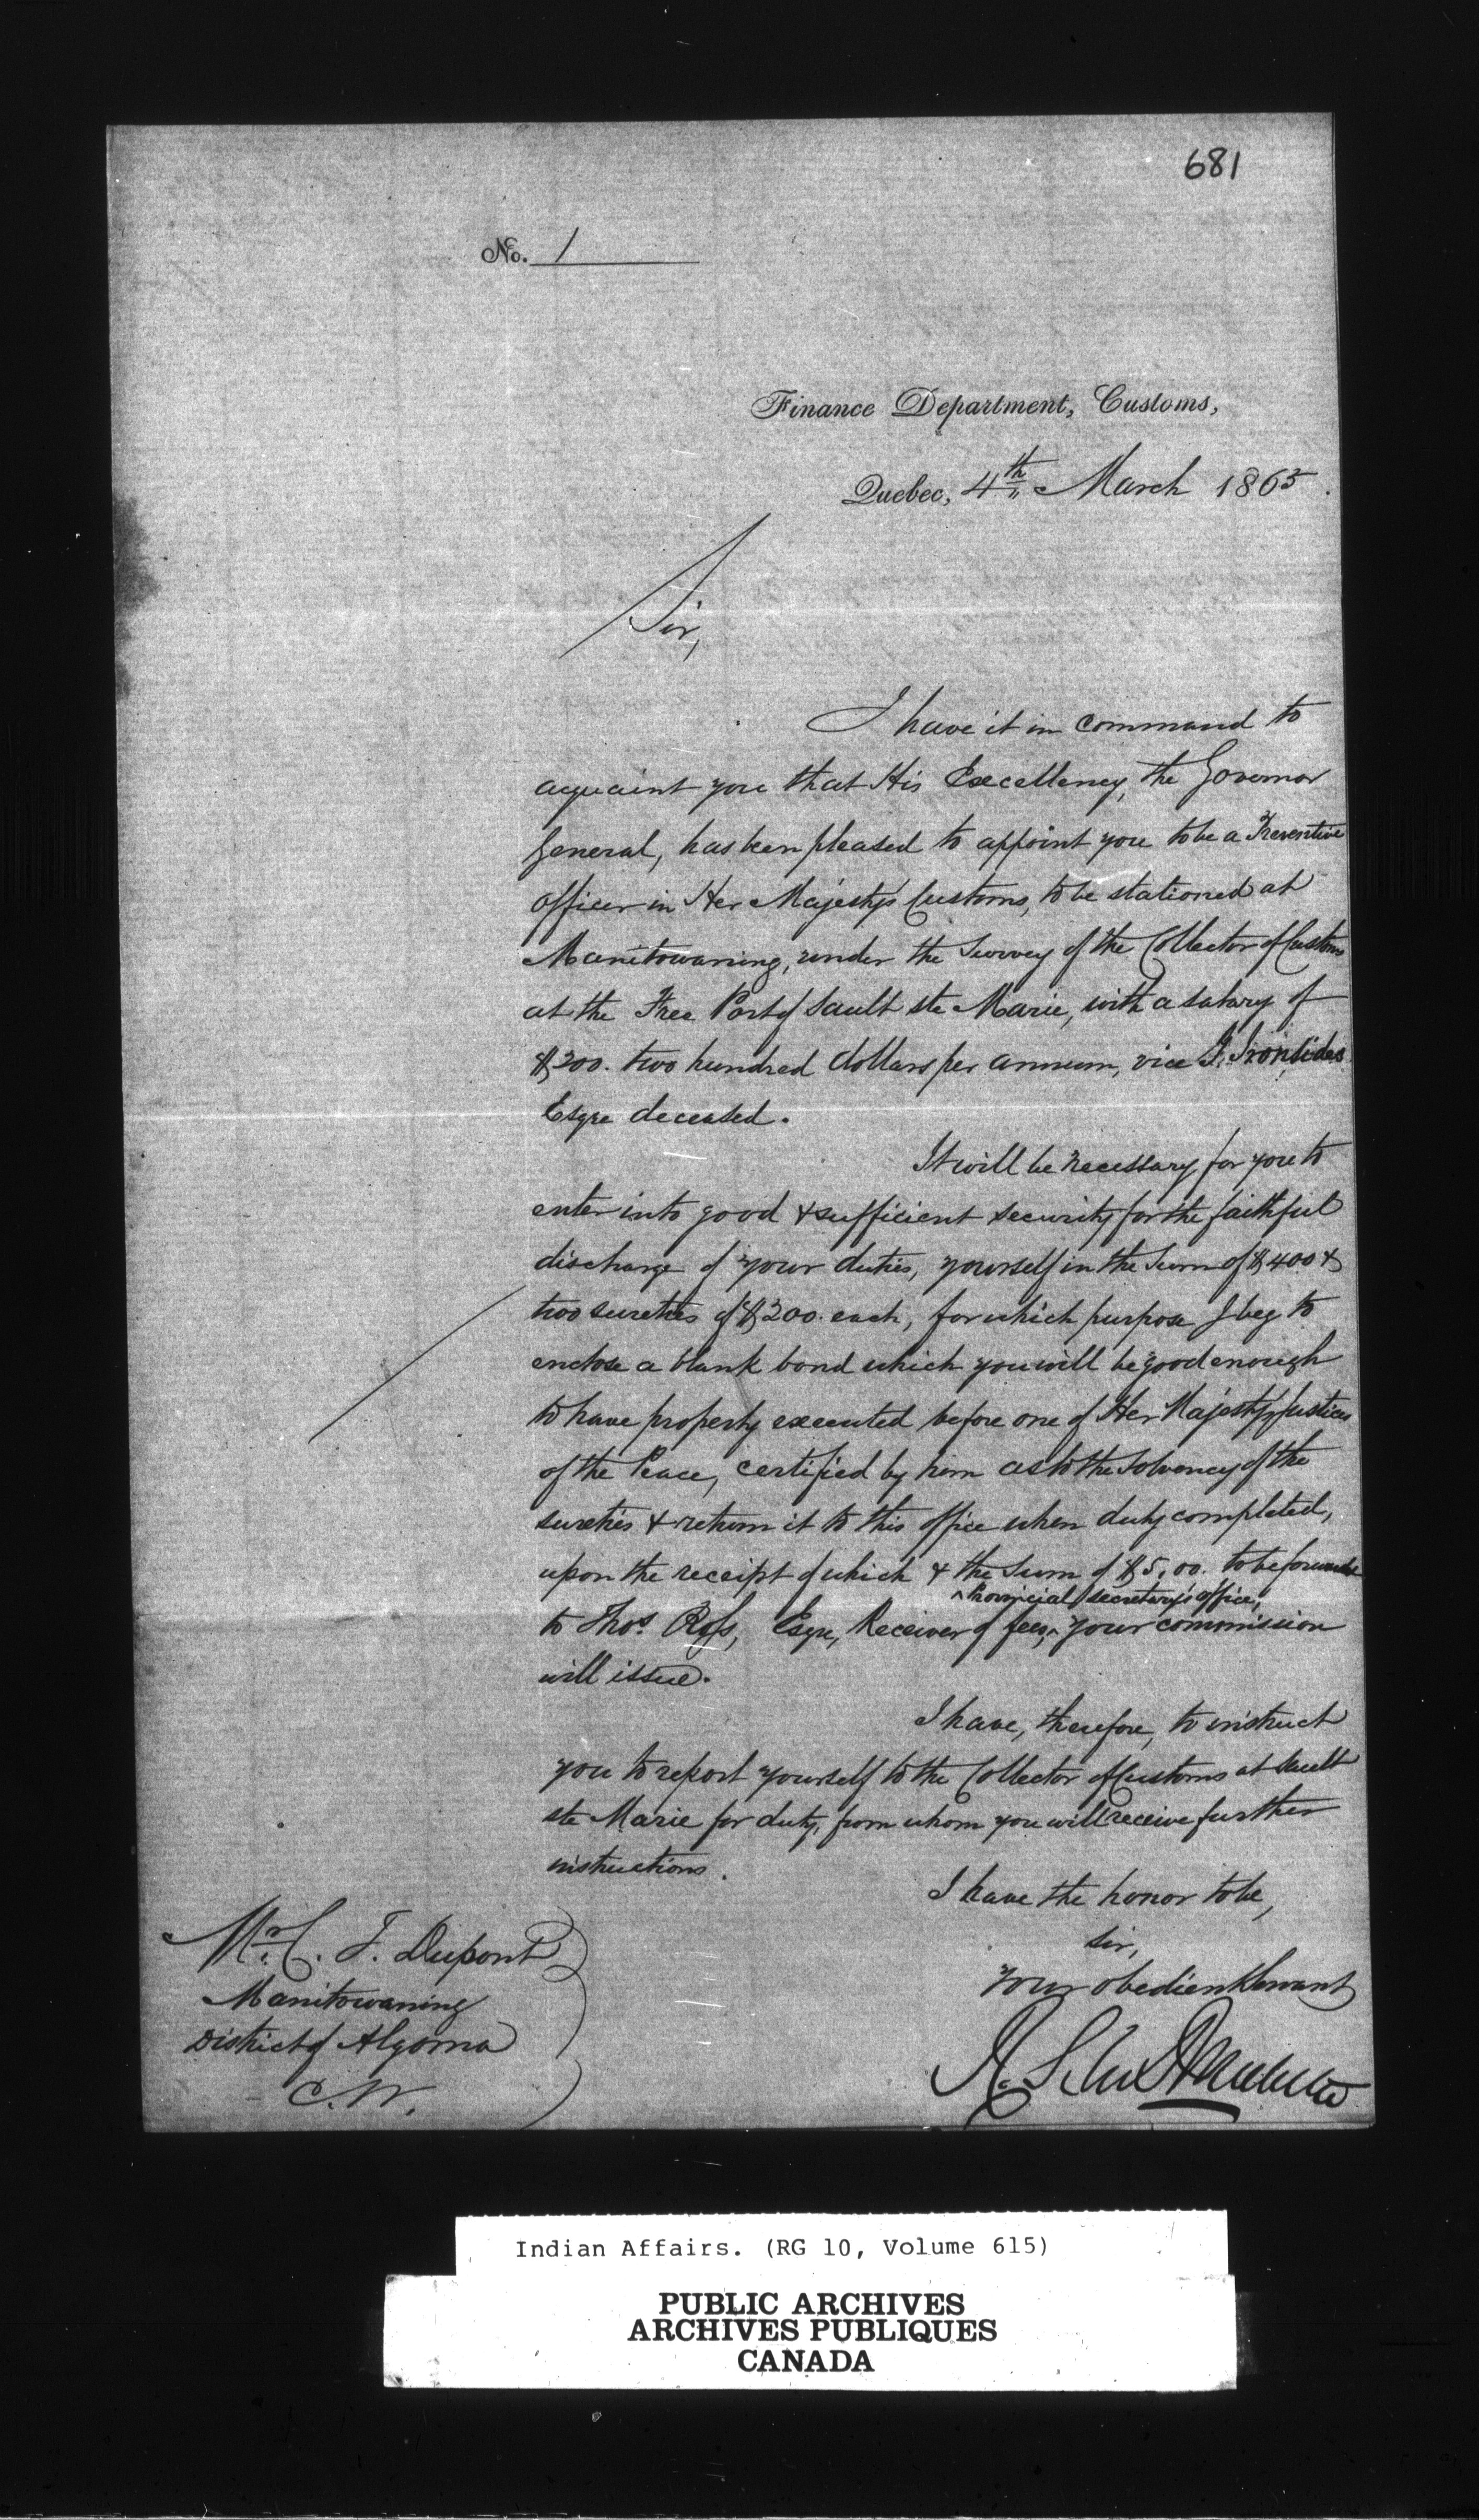 681
No. 1
Finance Department, Customs,
Quebec, 4th March 1865.
Sir,
I have it in command to
acquaint you that His Excellency, the Governor
General, has been pleased to appoint you to be a Preventive
Officer in Her Majesty's Customs, to be stationed at
Manitowaning, under the Survey of the Collector of Customs
at the Free Port of Sault ste Marie, with a salary of
$200. two hundred dollars per annum, vice G. Ironsides
Esqre deceased.
It will be necessary for you to
enter into good & sufficient security for the faithful
discharge of your duties, yourself in the sum of $400 &
two sureties of $200. each, for which purpose I beg to
enclose a blank bond which you will be good enough
to have properly executed before one of Her Majesty's Justices
of the Peace, certified by him as to the solvency of the
sureties & return it to this office when duly completed,
upon the receipt of which & the sum of $5.00. to be forwarded
^Provincial secretary's office,
to Thos. Ross, Esqre, Receiver of fees,^ your commission
will issue.
I have, therefore, to instruct
you to report yourself to the Collector of Customs at Sault
ste Marie for duty, from whom you will receive further
instructions.
I have the honor to be,
Sir,
Your obedient servant
Mr. C. T. Dupont
Manitowaning
District of Algoma
C.W.
Indian Affairs. (RG 10, Volume 615)
PUBLIC ARCHIVES
ARCHIVES PUBLIQUES
CANADA